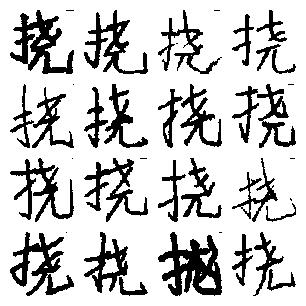 挠挠挠挠
挠挠挠挠
挠挠挠挠
挠挠挠挠